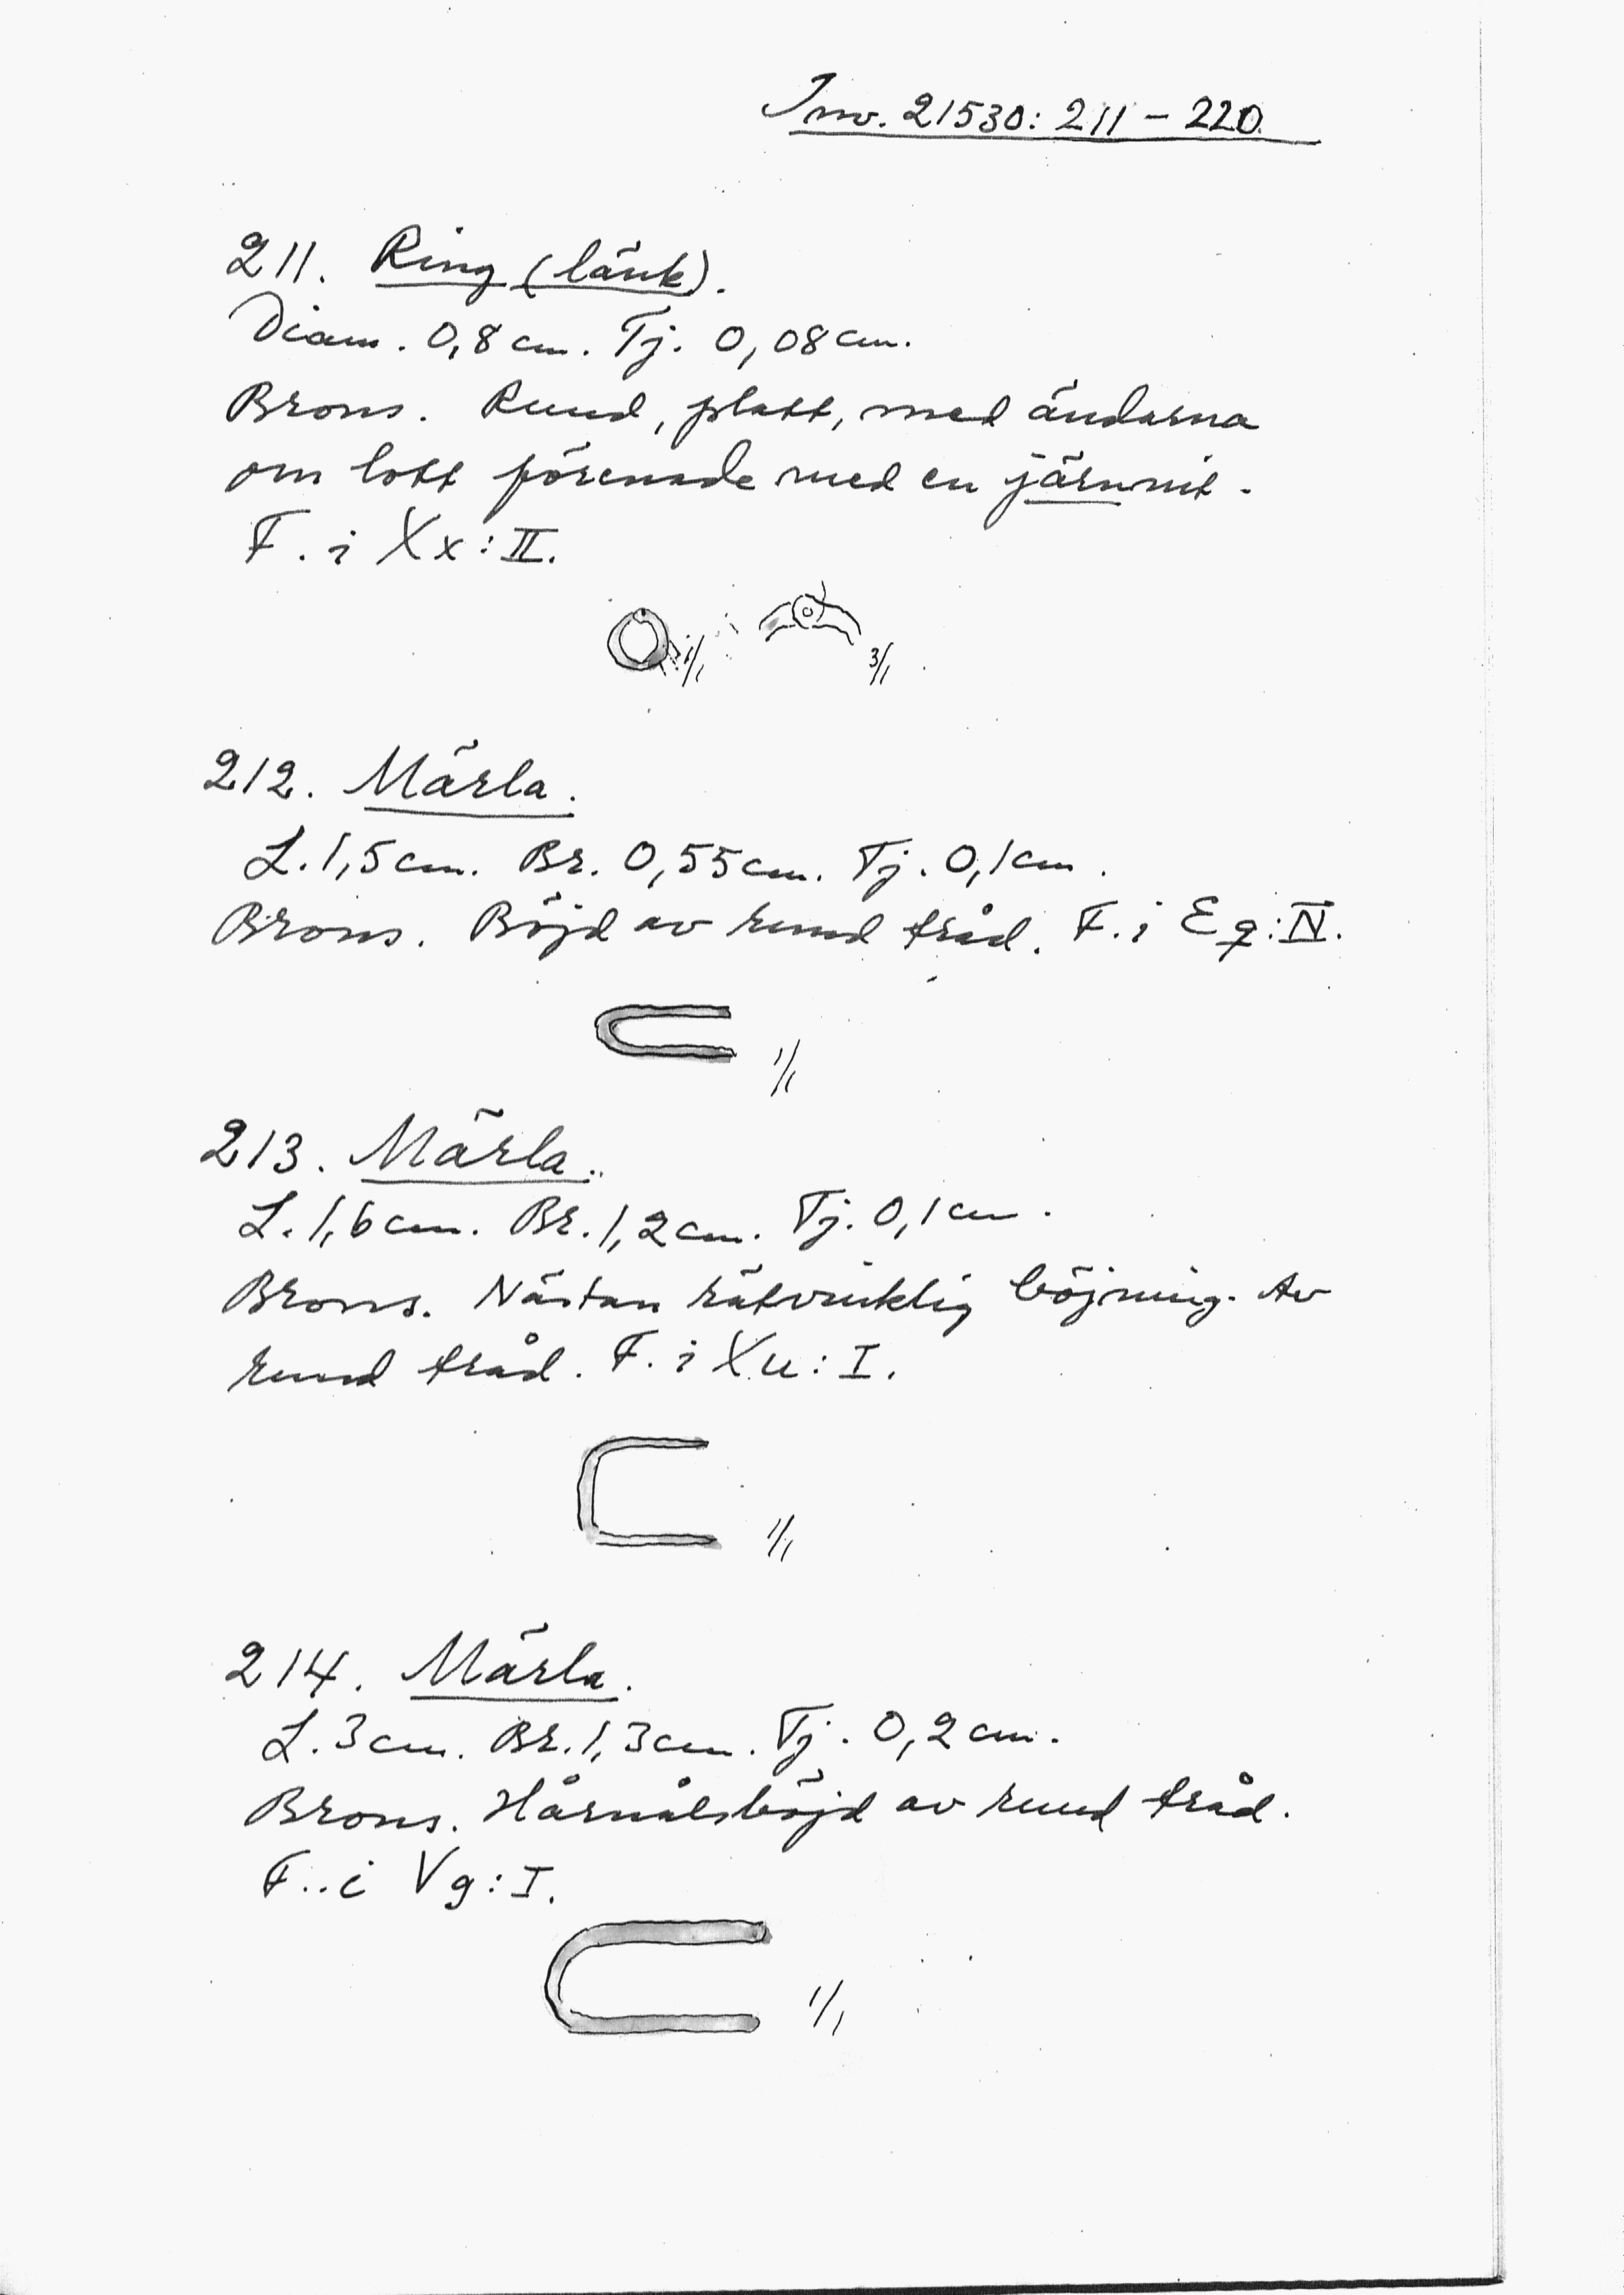 Inv. 21530: 211 – 220.
211. Ring (länk).
Diam. 0,8 cm. Tj. 0,08 cm.
Brons. Rund, platt, med ändarna
om lott förenade med en järnnit.
F. i Xx: II.
1/1 3/1
212. Märla.
L. 1,5 cm. Br. 0,55 cm. Tj. 0,1 cm.
Brons. Böjd av rund tråd. F. i Eq: IV.
1/1
213. Märla.
L. 1,6 cm. Br. 1,2 cm. Tj. 0,1 cm.
Brons. Nästan rätvinklig böjning. Av
rund tråd. F. i Xu: I.
1/1
214. Märla.
L. 3 cm. Br. 1,3 cm. Tj. 0,2 cm.
Brons. Hårnålsböjd av rund tråd.
F. i Vg: I.
1/1